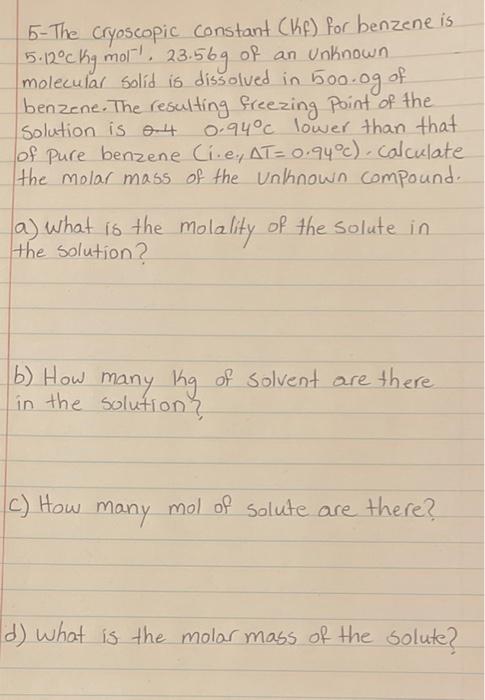 5-The Cryoscopic Constant (Kf) for benzene is
5.12°C Kg mol⁻¹. 23.56g of an Unknown
molecular solid is dissolved in 500.0g of
benzene. The resulting freezing point of the
Solution is 0.4 0.94°C lower than that
of Pure benzene (i.e, ΔT= 0.94°C). Calculate
the molar mass of the Unknown compound.
a) What is the molality of the solute in
the solution?
b) How many Kg of solvent are there
in the solution?
c) How many mol of solute are there?
d) What is the molar mass of the solute?